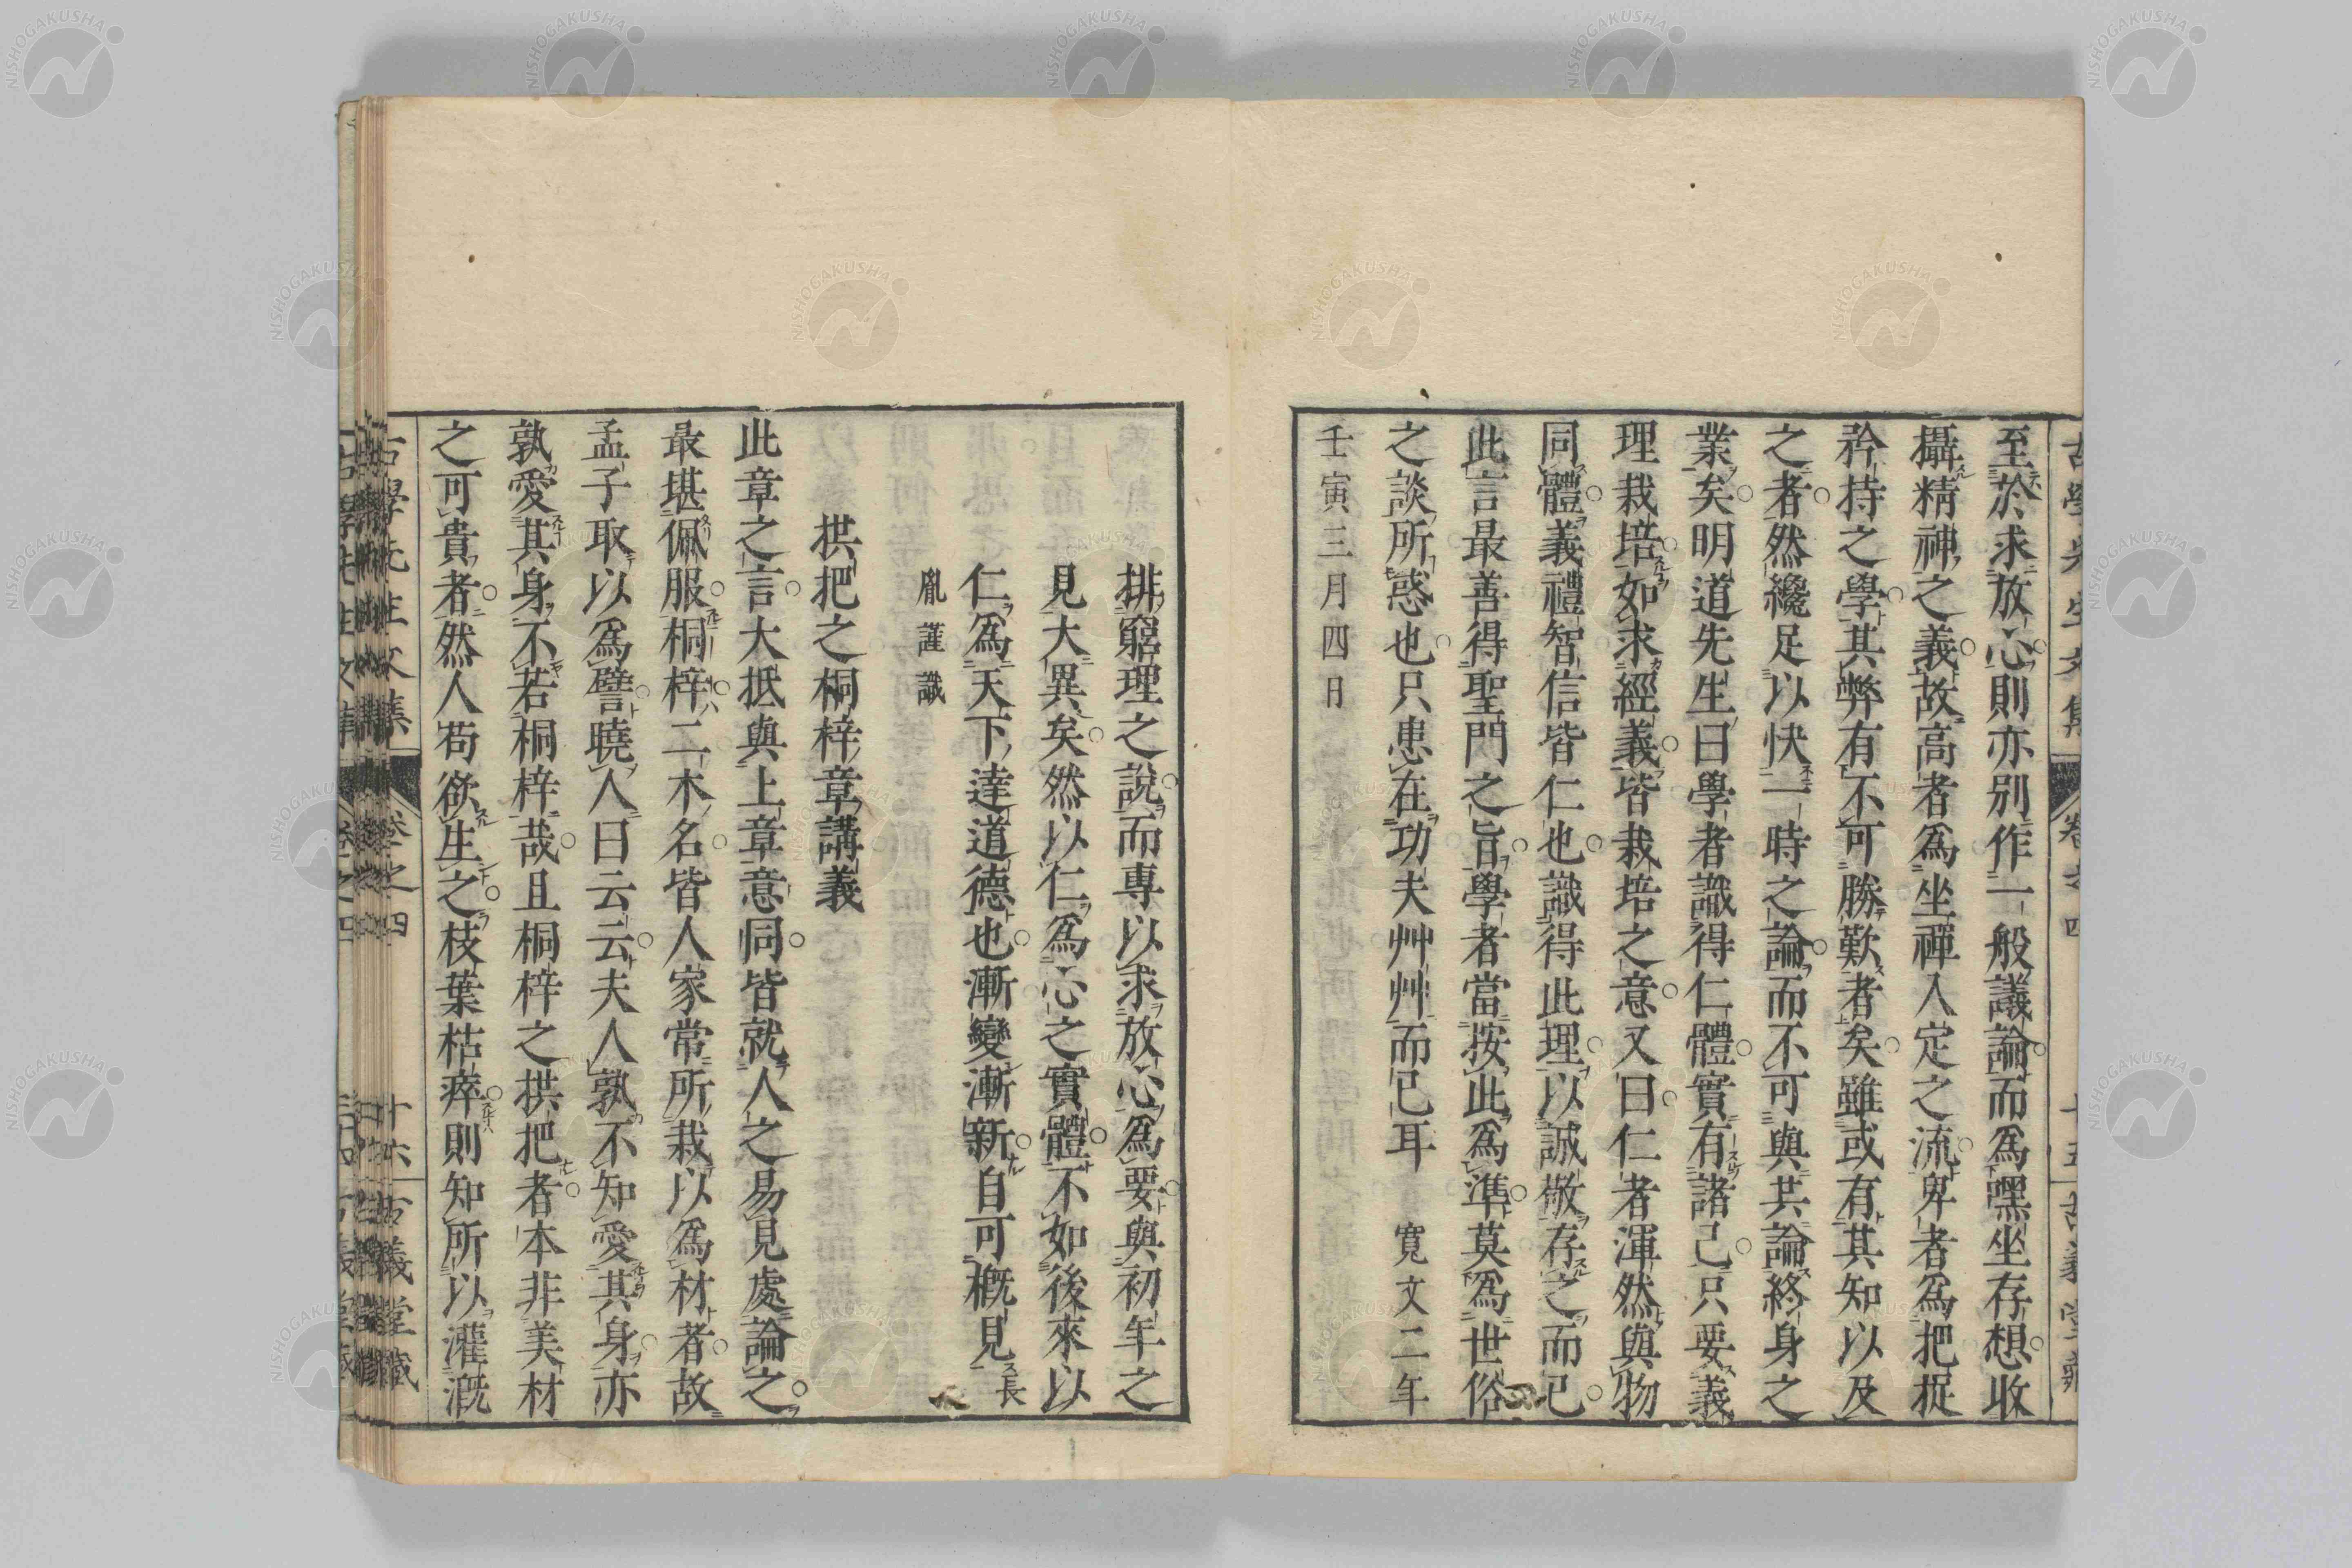 古學先生文集 卷之四 十五 古義堂藏
至於求放心則亦別作一般議論而爲嘿坐存想收
攝精神之義故高者爲坐禪入定之流卑者爲把捉
矜持之學其弊有不可勝歎者矣雖或有其知以及
之者然纔足以快一時之論而不可與共論終身之
業矣明道先生曰學者識得仁體實有諸己只要義
理栽培如求經義皆栽培之意又曰仁者渾然與物
同體義禮智信皆仁也識得此理以誠敬存之而已
此言最善得聖門之旨學者當按此爲準莫爲世俗
之談所惑也只患在功夫艸艸而已耳 寬文二年
壬寅三月四日
排窮理之說而專以求放心爲要與初年之
見大異矣然以仁爲心之實體不如後來以
仁爲天下達道德也漸變漸新自可概見
長胤謹識
拱把之桐梓章講義
此章之言大抵與上章意同皆就人之易見處論之
最堪佩服桐梓二木名皆人家常所栽以爲材者故
孟子取以爲譬曉人曰云云夫人孰不知愛其身亦
孰愛其身不若桐梓哉且桐梓之拱把者本非美材
之可貴者然人苟欲生之枝葉枯瘁則知所以灌漑
古學先生文集 卷之四 十六 古義堂藏
NISHOGAKUSHA